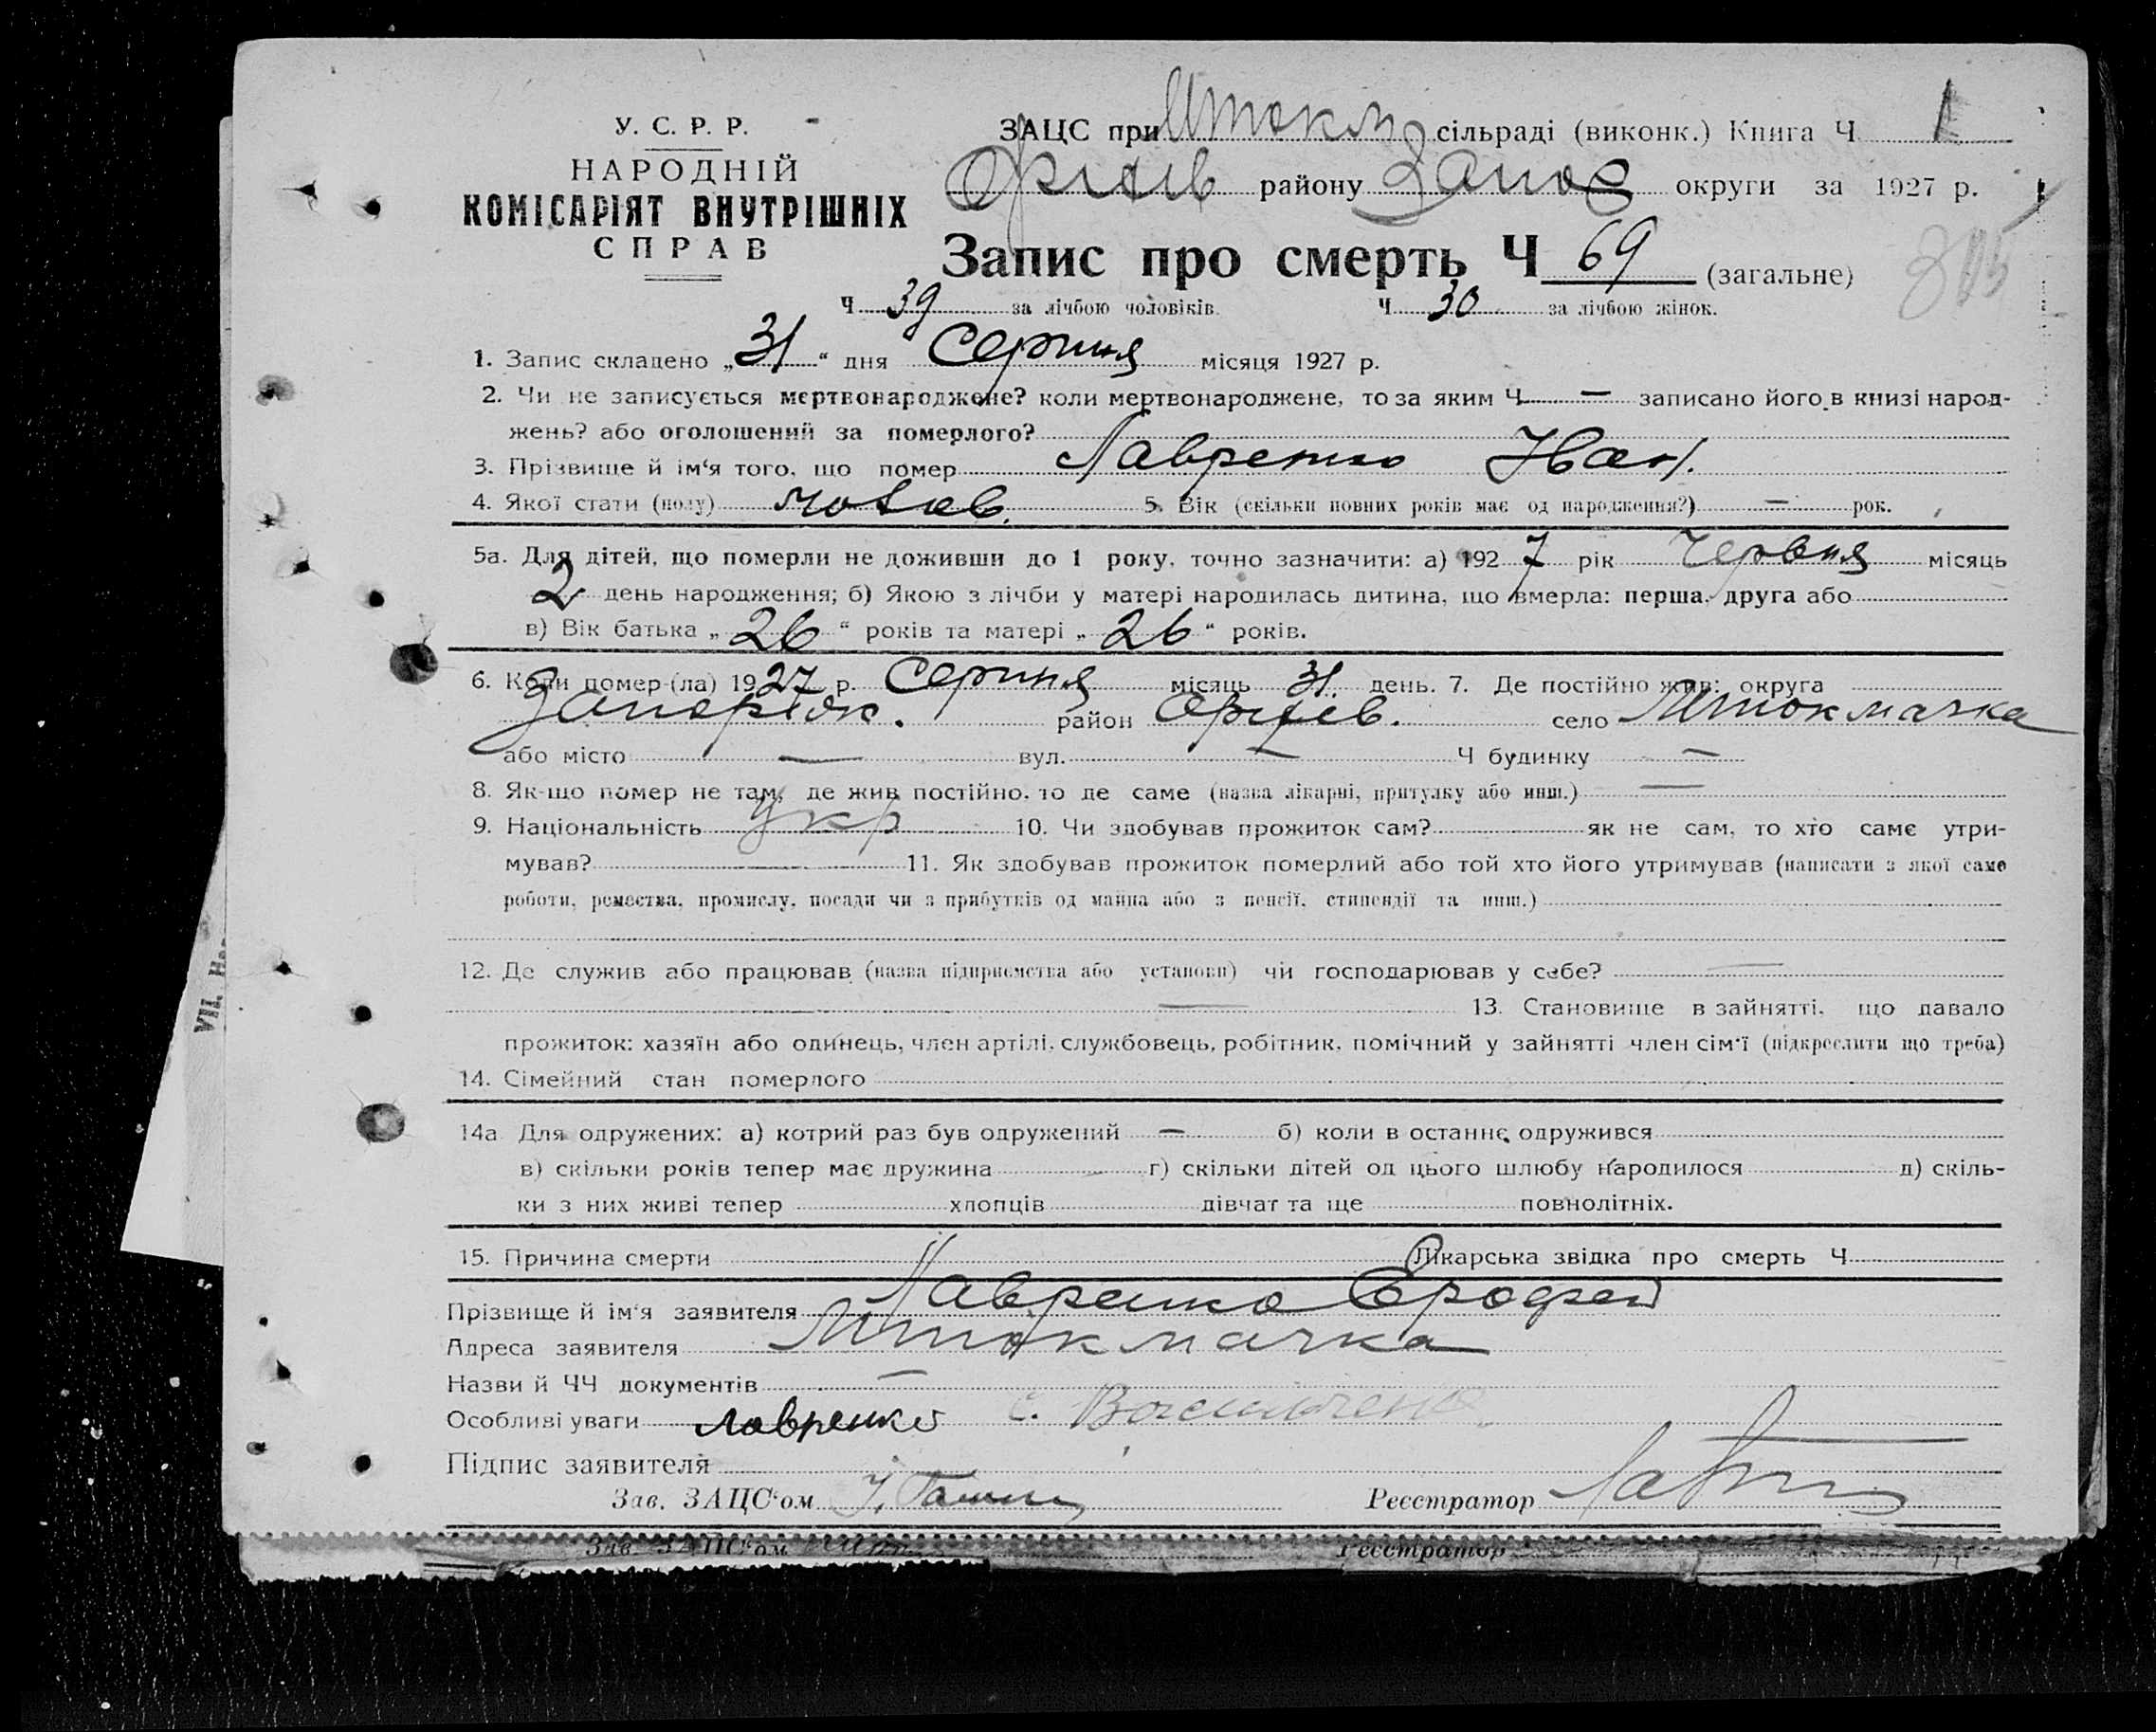 У. С. Р. Р.
НАРОДНІЙ
КОМІСАРІЯТ ВНУТРІШНІХ
СПРАВ
ЗАЦС при Мток м сільраді (виконк.) Книга Ч 1
Оріхів району Запор округи за 1927 р.
Запис про смерть Ч 69 (загальне)
Ч 39 за лічбою чоловіків. Ч 30 за лічбою жінок.
1. Запис складено „31“ дня Серпня місяця 1927 р.
2. Чи не записується мертвонароджене? коли мертвонароджене, то за яким Ч — записано його в книзі народ-
жень? або оголошений за померлого?
3. Прізвище й ім‘я того, що помер Лавренко Иван.
4. Якої стати (полу) чолов. 5. Вік (скільки повних років має од народження?) — рок.
5а. Для дітей, що померли не доживши до 1 року, точно зазначити: а) 1927 рік Червня місяць
2 день народження; б) Якою з лічби у матері народилась дитина, що вмерла: перша, друга або
в) Вік батька „26“ років та матері „26“ років.
6. Коли помер-(ла) 1927 р. Серпня місяць 31 день. 7. Де постійно жив: округа
Запоріж. район Оріхів. село Мтокмачка
або місто — вул. — Ч будинку —
8. Як-що помер не там, де жив постійно, то де саме (назва лікарні, притулку або инш.) —
9. Національність укр 10. Чи здобував прожиток сам? як не сам, то хто саме утри-
мував? — 11. Як здобував прожиток померлий або той хто його утримував (написати з якої саме
роботи, ремества, промислу, посади чи з прибутків од майна або з пенсії, стипендії та инш.)
12. Де служив або працював (назва підприємства або установи) чи господарював у себе? —
— 13. Становище в зайнятті, що давало
прожиток: хазяїн або одинець, член артілі, службовець, робітник, помічний у зайнятті член сім‘ї (підкреслити що треба)
14. Сімейний стан померлого
14а Для одружених: а) котрий раз був одружений — б) коли в останнє одружився
в) скільки років тепер має дружина — г) скільки дітей од цього шлюбу народилося д) скіль-
ки з них живі тепер хлопців дівчат та ще повнолітніх.
15. Причина смерти Лікарська звідка про смерть Ч
Прізвище й ім‘я заявителя Лавренко Єрофей
Адреса заявителя Мтокмачка
Назви й ЧЧ документів —
Особливі уваги Лавренко
Підпис заявителя
Зав. ЗАЦС‘ом Реєстратор
Зав. ЗАЦС‘ом Реєстратор
VII. На